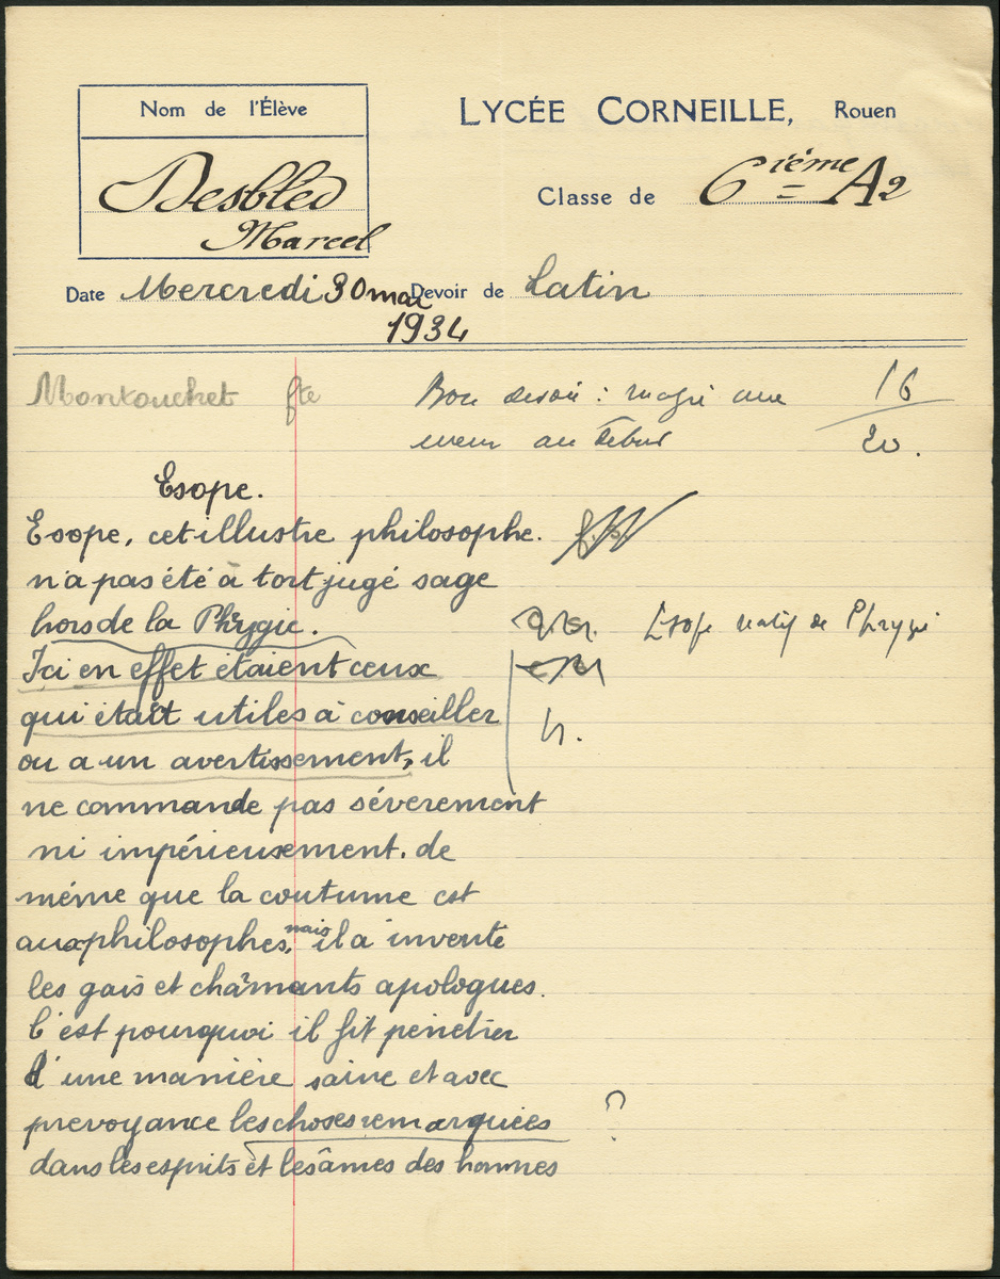 Nom de l'Élève
LYCÉE CORNEILLE, Rouen
Desbled
Marcel
Classe de 6ième A2
Date Mercredi 30 mai Devoir de Latin
1934
Montouchet fte
Bon devoir : malgré une
16
erreur au début
20.
Esope.
Esope, cet illustre philosophe.
n'a pas été à tort jugé sage
hors de la Phrygie.
Esope natif de Phrygie
Ici en effet étaient ceux
qui était utiles à conseiller
ou a un avertissement, il
ne commande pas séverement
ni impérieusement. de
même que la coutume est
aux philosophes, mais il a invente
les gais et chârmants apologues.
C'est pourquoi il fit penetrer
d'une manière saine et avec
prevoyance les choses remarquées
?
dans les esprits et les âmes des hommes